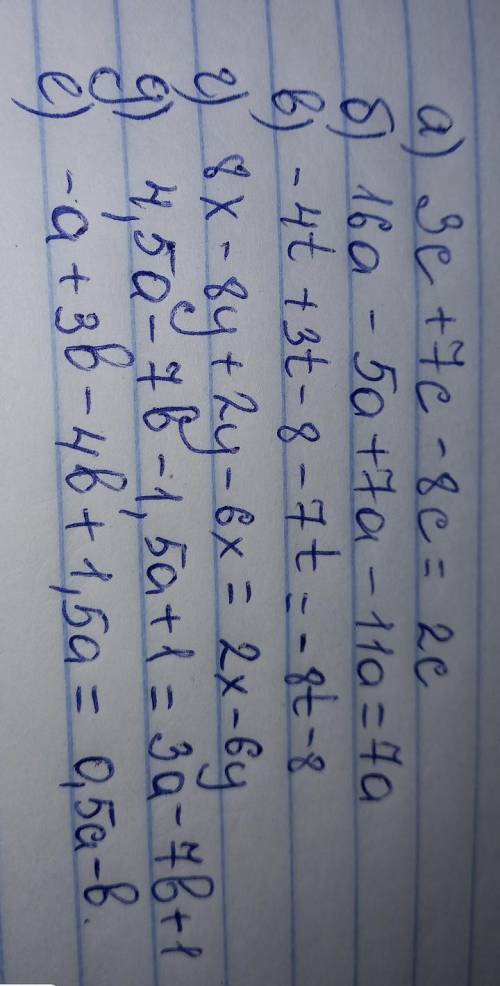 а) 3c + 7c - 8c = 2c
б) 16a - 5a + 7a - 11a = 7a
в) -4t + 3t - 8 - 7t = -8t - 8
г) 8x - 8y + 2y - 6x = 2x - 6y
д) 4,5a - 7b - 1,5a + 1 = 3a - 7b + 1
е) -a + 3b - 4b + 1,5a = 0,5a - b.